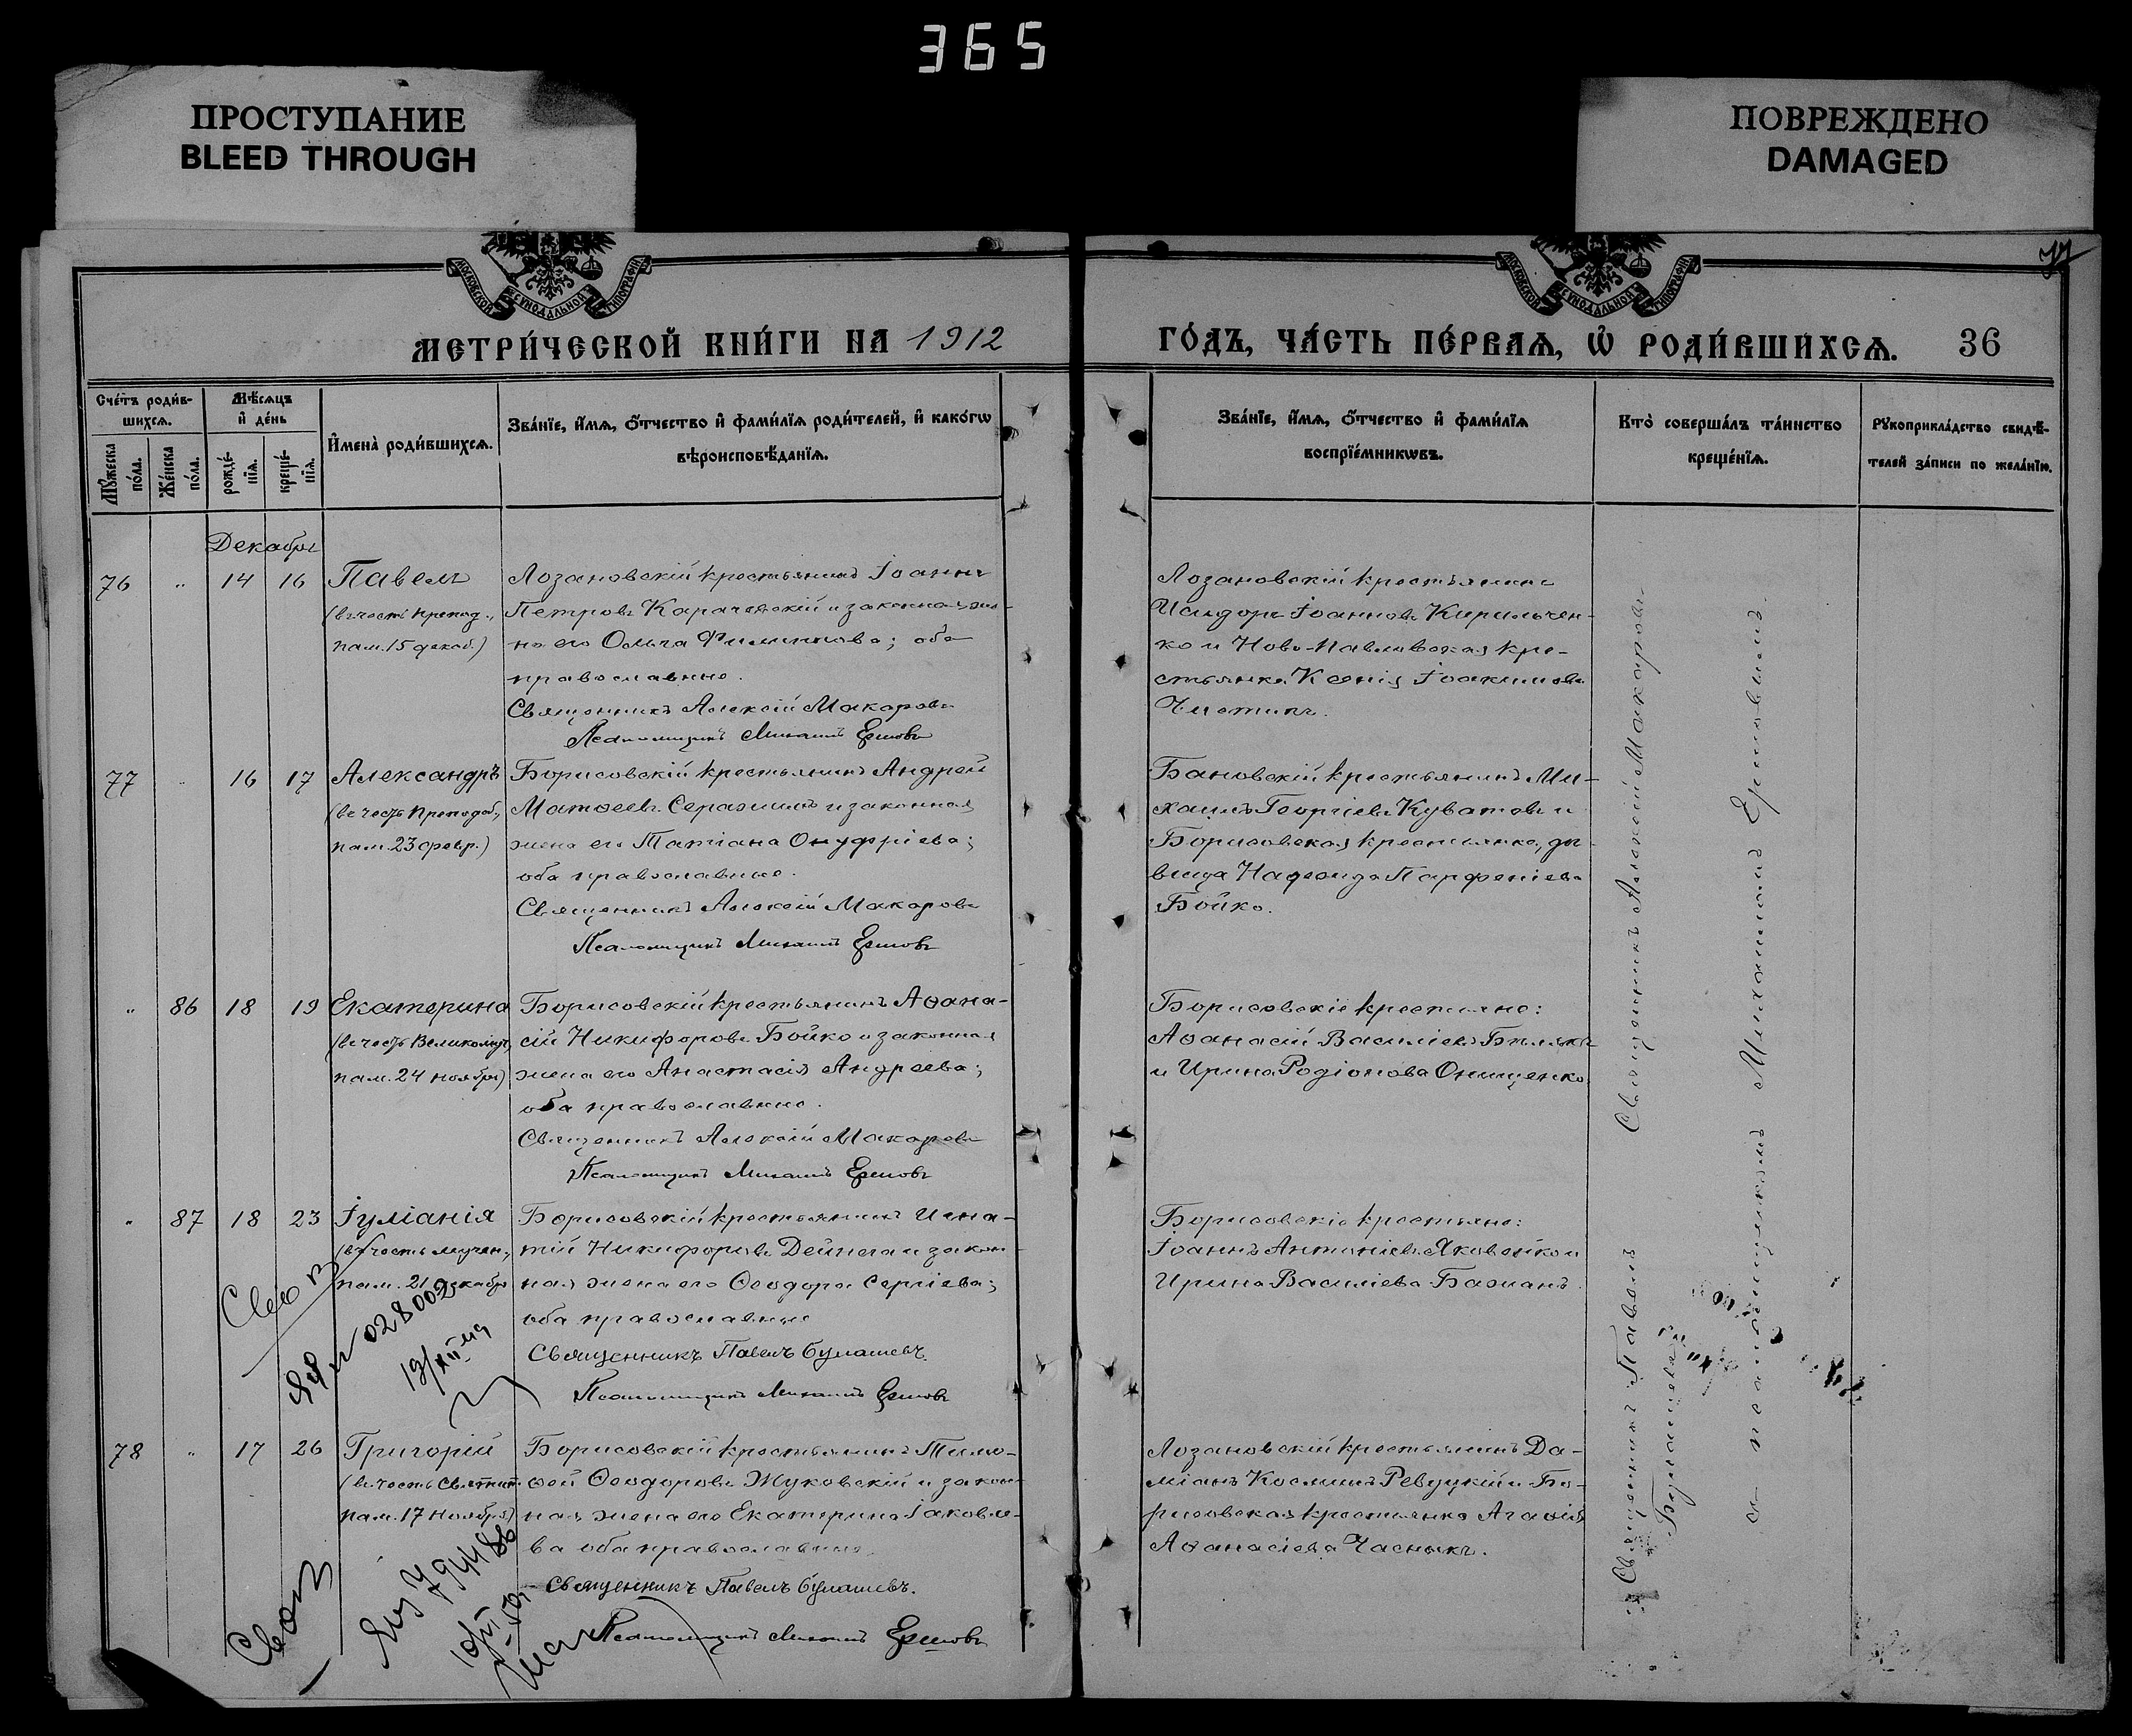 365
ПРОСТУПАНИЕ
BLEED THROUGH
ПОВРЕЖДЕНО
DAMAGED
МОСКОВСКОЙ СѴНОДАЛЬНОЙ ТИПОГРАФІИ
МОСКОВСКОЙ СѴНОДАЛЬНОЙ ТИПОГРАФІИ
МЕТРИ́ЧЕСКОЙ КНИ́ГИ НА 1912
ГО́ДЪ, ЧА́СТЬ ПЕ́РВАѦ, Ѡ҆ РОДИ́ВШИХСѦ. 36
Сче́тъ роди́в-
шихсѧ.
Мꙋ́жеска по́ла.
Же́нска по́ла.
Мѣ́сѧцъ
и҆ де́нь
рожде́-
нїѧ.
креще́-
нїѧ.
И҆мена̀ роди́вшихсѧ.
Зва́нїе, и҆́мѧ, ѻ҆́тчество и҆ фами́лїѧ роди́телей, и҆ како́гѡ
вѣроисповѣ́данїѧ.
Зва́нїе, и҆́мѧ, ѻ҆́тчество и҆ фами́лїѧ
воспрїе́мникѡвъ.
Кто̀ соверша́лъ та́инство
креще́нїѧ.
Рꙋкоприкла́дство свидѣ́-
телей за́писи по жела́нїю.
Декабрь
76 " 14 16 Павелъ
(въ честь препод.,
пам. 15 декаб.)
Лозановскій крестьянинъ Іоаннъ
Петровъ Карачевскій и законная же-
на его Ольга Филиппова; оба
православные.
Священникъ Алексій Макаровъ
Псаломщикъ Михаилъ Ершовъ
Лозановскій крестьянинъ
Исидоръ Іоанновъ Кирильчен-
ко и Ново-Павловская кре-
стьянка Ксенія Іоакимова
Чистикъ.
77 " 16 17 Александръ
(въ честь преподоб.,
пам. 23 февр.)
Борисовскій крестьянинъ Андрей
Матѳеевъ Серажимъ и законная
жена его Татіана Онуфріева;
оба православные.
Священникъ Алексій Макаровъ
Псаломщикъ Михаилъ Ершовъ
Бановскій крестьянинъ Ми-
хаилъ Георгіевъ Куватовъ и
Борисовская крестьянка, дѣ-
вица Парѳеніева
Бойко.
" 86 18 19 Екатерина
(въ честь Великомуч.,
пам. 24 ноября)
Борисовскій крестьянинъ Аѳана-
сій Никифоровъ Бойко и законная
жена его Анастасія Андреева;
оба православные.
Священникъ Алексій Макаровъ
Псаломщикъ Михаилъ Ершовъ
Борисовскіе крестьяне:
Аѳанасій Василіевъ
и Ирина Родіонова Онищенко.
" 87 18 23 Іуліанія
(въ честь мучен.,
пам. 21 декабр.
Борисовскій крестьянинъ Игна-
тій Никифоровъ Дейнега и закон-
ная жена его Ѳеодора Сергіева;
оба православные
Священникъ Павелъ Булашевъ.
Псаломщикъ Михаилъ Ершовъ
Борисовскіе крестьяне:
Іоаннъ Антоніевъ Яковейко и
Ирина Василіева Бажанъ
028002
78 " 17 26 Григорій
(въ честь Святит.
пам. 17 ноября)
Борисовскій крестьянинъ Тимо-
ѳей Ѳеодоровъ Жуковскій и закон-
ная жена его Екатерина Іаковле-
ва оба православные.
Священникъ Павелъ Булашевъ.
Псаломщикъ Михаилъ Ершовъ
Лозановскій крестьянинъ Да-
міанъ Косминъ Ревуцкій и Бо-
рисовская крестьянка Агаѳія
Аѳанасіева Часныкъ.
Священникъ Алексій Макаровъ
Священникъ Павелъ
Булашевъ
съ псаломщикомъ Михаиломъ Ершовымъ.